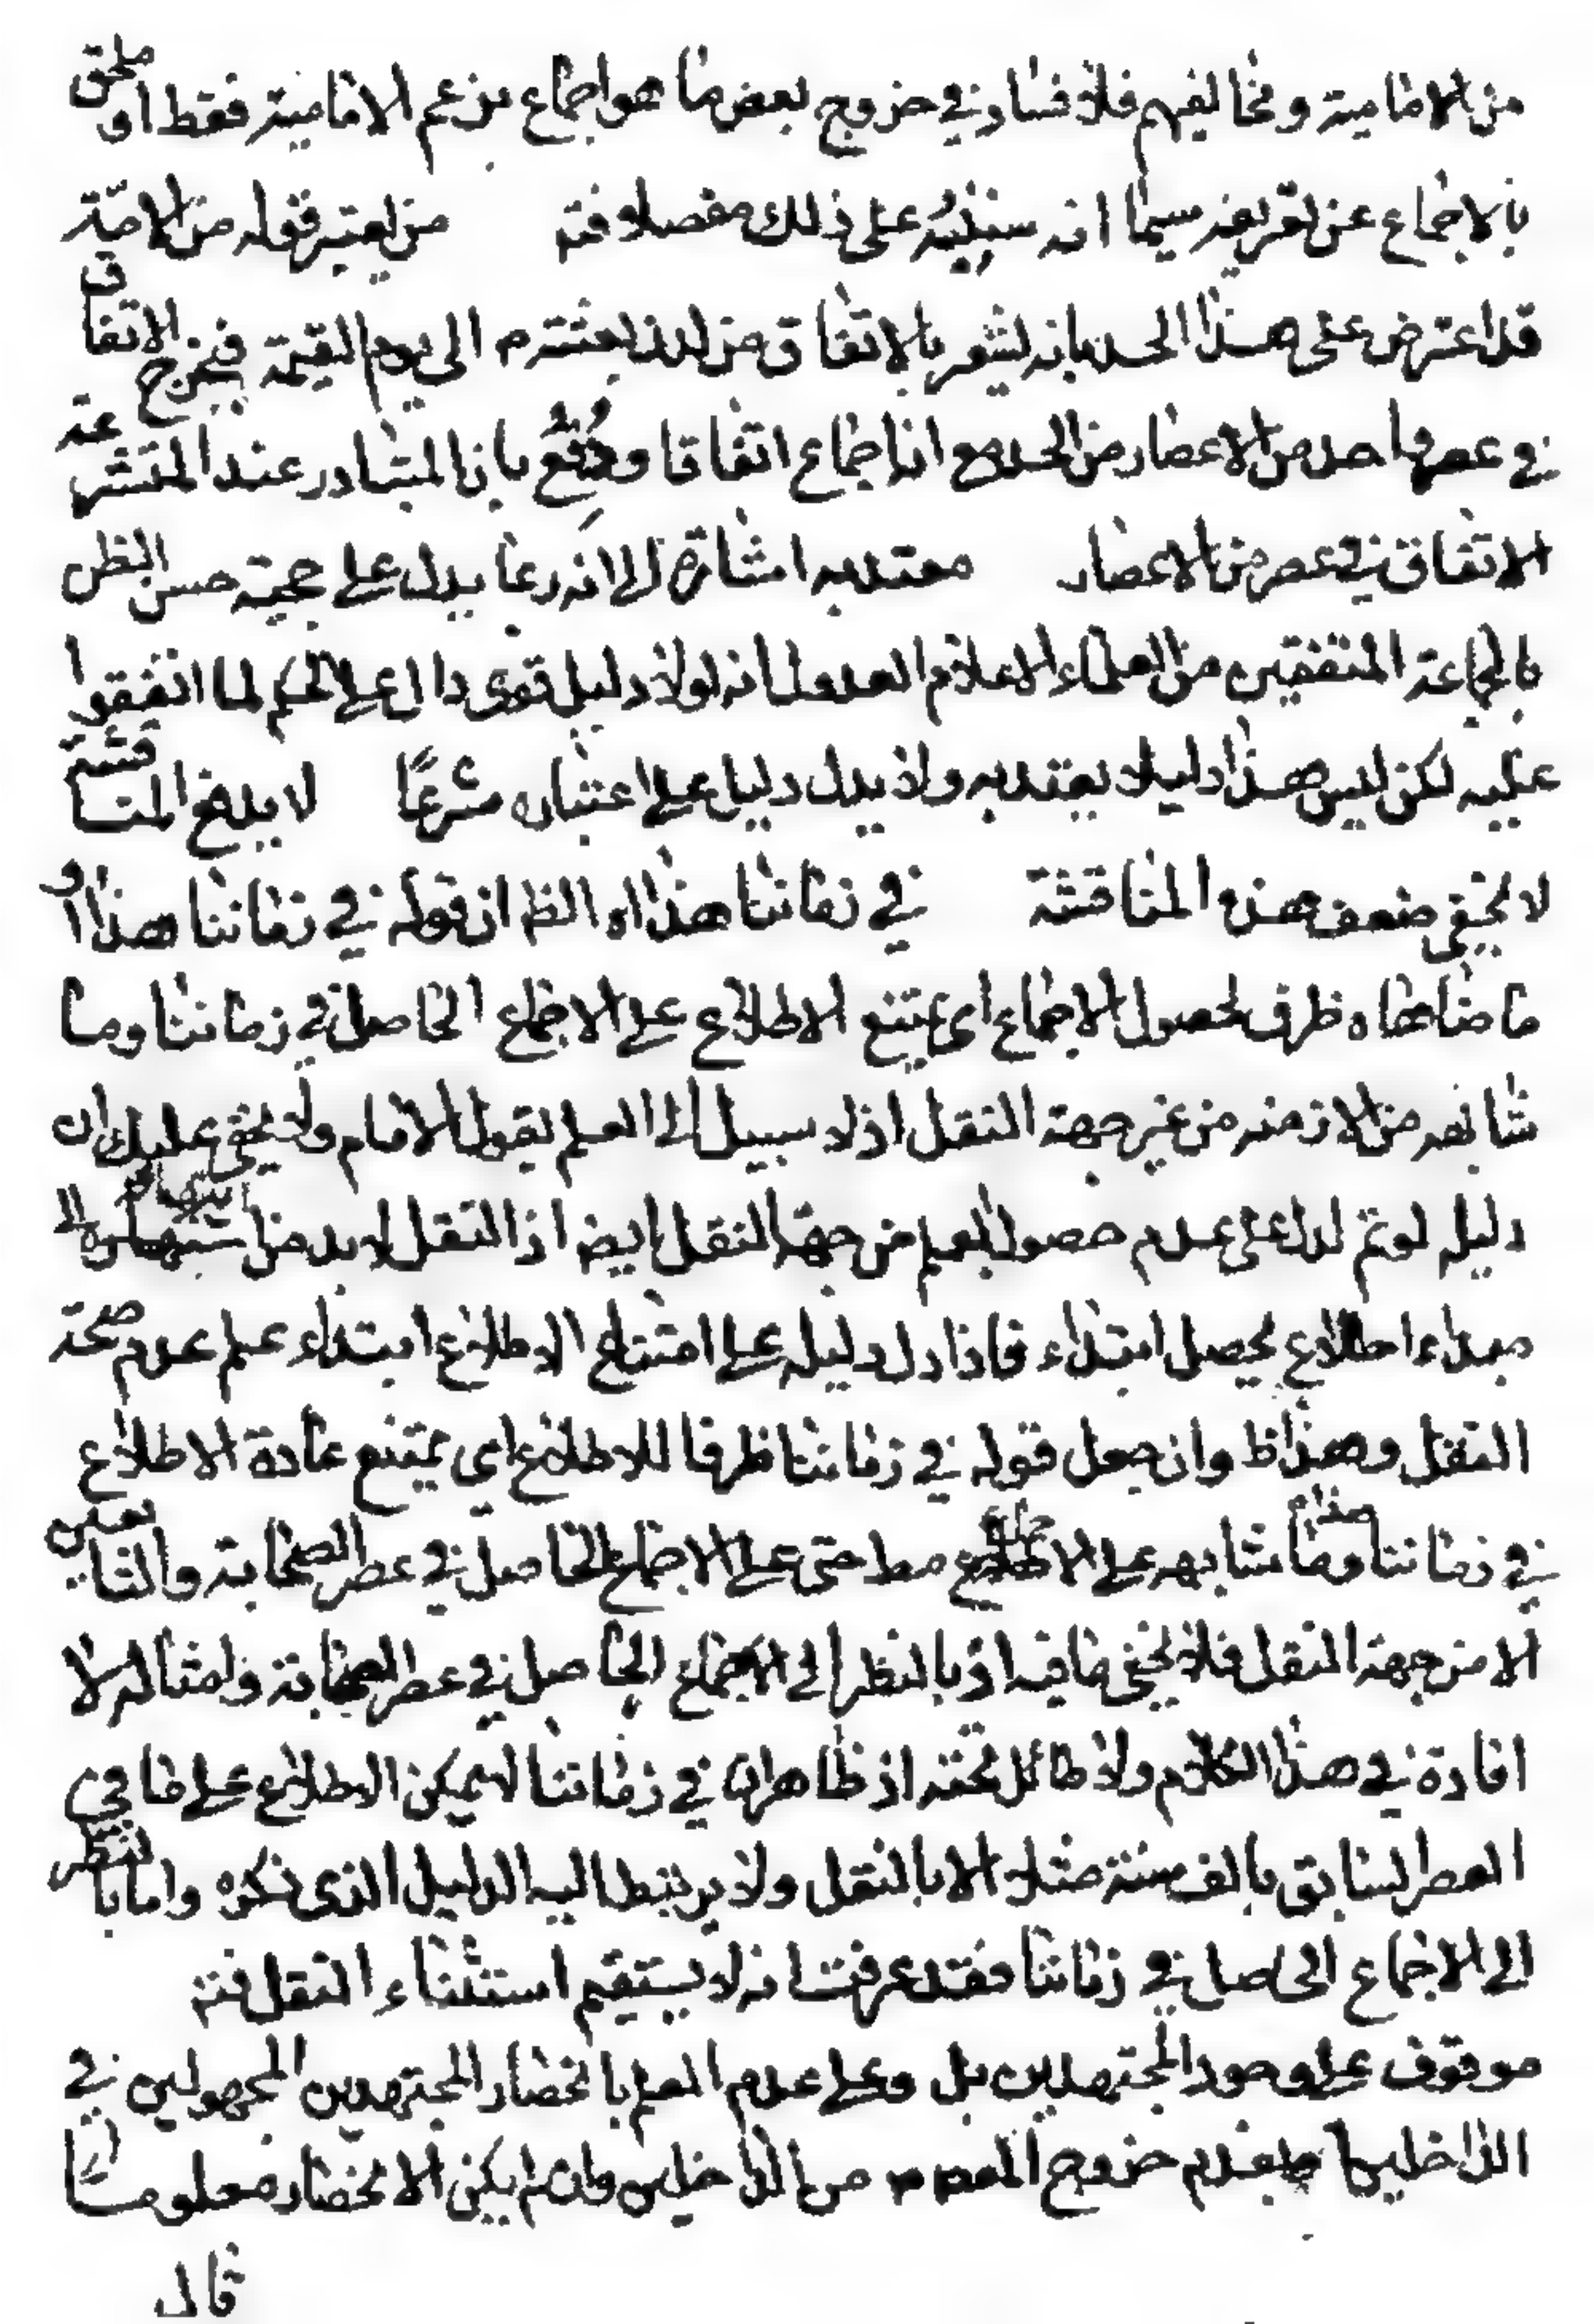 من الامامية ومخالفيهم فلا فساد في خروج بعض ما هو اجماع بزعم الامامية فقط او ملحق
بالاجماع عن تعريفه سيما انه سينبه على ذلك مفصلا فتم من يعتبر قوله من الامة
قد اعترض على هذا الحد بانه يشعر بالاتفاق من لدن بعثته م الى يوم القيمة فيخرج الاتفاق
في عصر واحد من الاعصار من الحد مع انه اجماع اتفاقا ودُفِعُ بان المتبادر عند المتشرعة
الاتفاق في عصر من الاعصار معتد به اشارة الى انه ربما يدل على حجية حسن الظن
بالجماعة المتفقين من العلماء الاعلام العدول انه لولا دليل قوى دال على الحكم لما اتفقوا
عليه لكن ليس هذا دليلا يعتد به ولا يدل دليل على اعتباره شرعًا لا يدفع المناقشة
لا يخفى ضعف هذه المناقشة في زماننا هذا اه الظ ان قوله في زماننا هذا او
ما ضاهاه ظرف لحصول الاجماع اى يمتنع الاطلاع على الاجماع الحاصل في زماننا وما
شابهه من الازمنه من غير جهة النقل اذ لا سبيل الى العلم بقول الامام ولا يخفى عليك ان
دليله لو تم لدل على عدم حصول العلم من جهة النقل ايضا اذ النقل لا بد من انتهائه الى
مبداء اطلاع يحصل ابتداء فاذا دل دليله على امتناع الاطلاع ابتداء علم عدم صحة
النقل وهذا ظ وان جعل قوله في زماننا ظرفا للاطلاع اى يمتنع عادة الاطلاع
في زماننا هذا وما شابهه على الاجماع مط حتى على الاجماع الحاصل في عصر الصحابة والتابعين
الا من جهة النقل فلا يخفى ما فيه اذ بالنظر الى الاجماع الحاصل في عصر الصحابة وامثاله لا
افادة في هذا الكلام ولا طائل تحته اذ ظاهر ان في زماننا لا يمكن الاطلاع على ما في
العصر السابق بالف سنة مثلا الا بالنقل ولا يرتبط اليه الدليل الذى ذكره واما بالنظر
الى الاجماع الحاصل في زماننا فقد عرفت انه لا يستقيم استثناء النقل فتم
موقوف على وجود المجتهدين بل وعلى عدم العلم بانحصار المجتهدين المجهولين في
الداخلين وبعدم خروج من الداخلين وان لم يكن الانحصار معلوما
قال